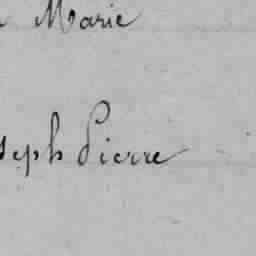 Marie
seph Pierre